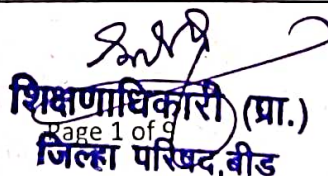 शिक्षणाधिकारी (प्रा.)
Page 1 of 9
जिल्हा परिषद,बीड